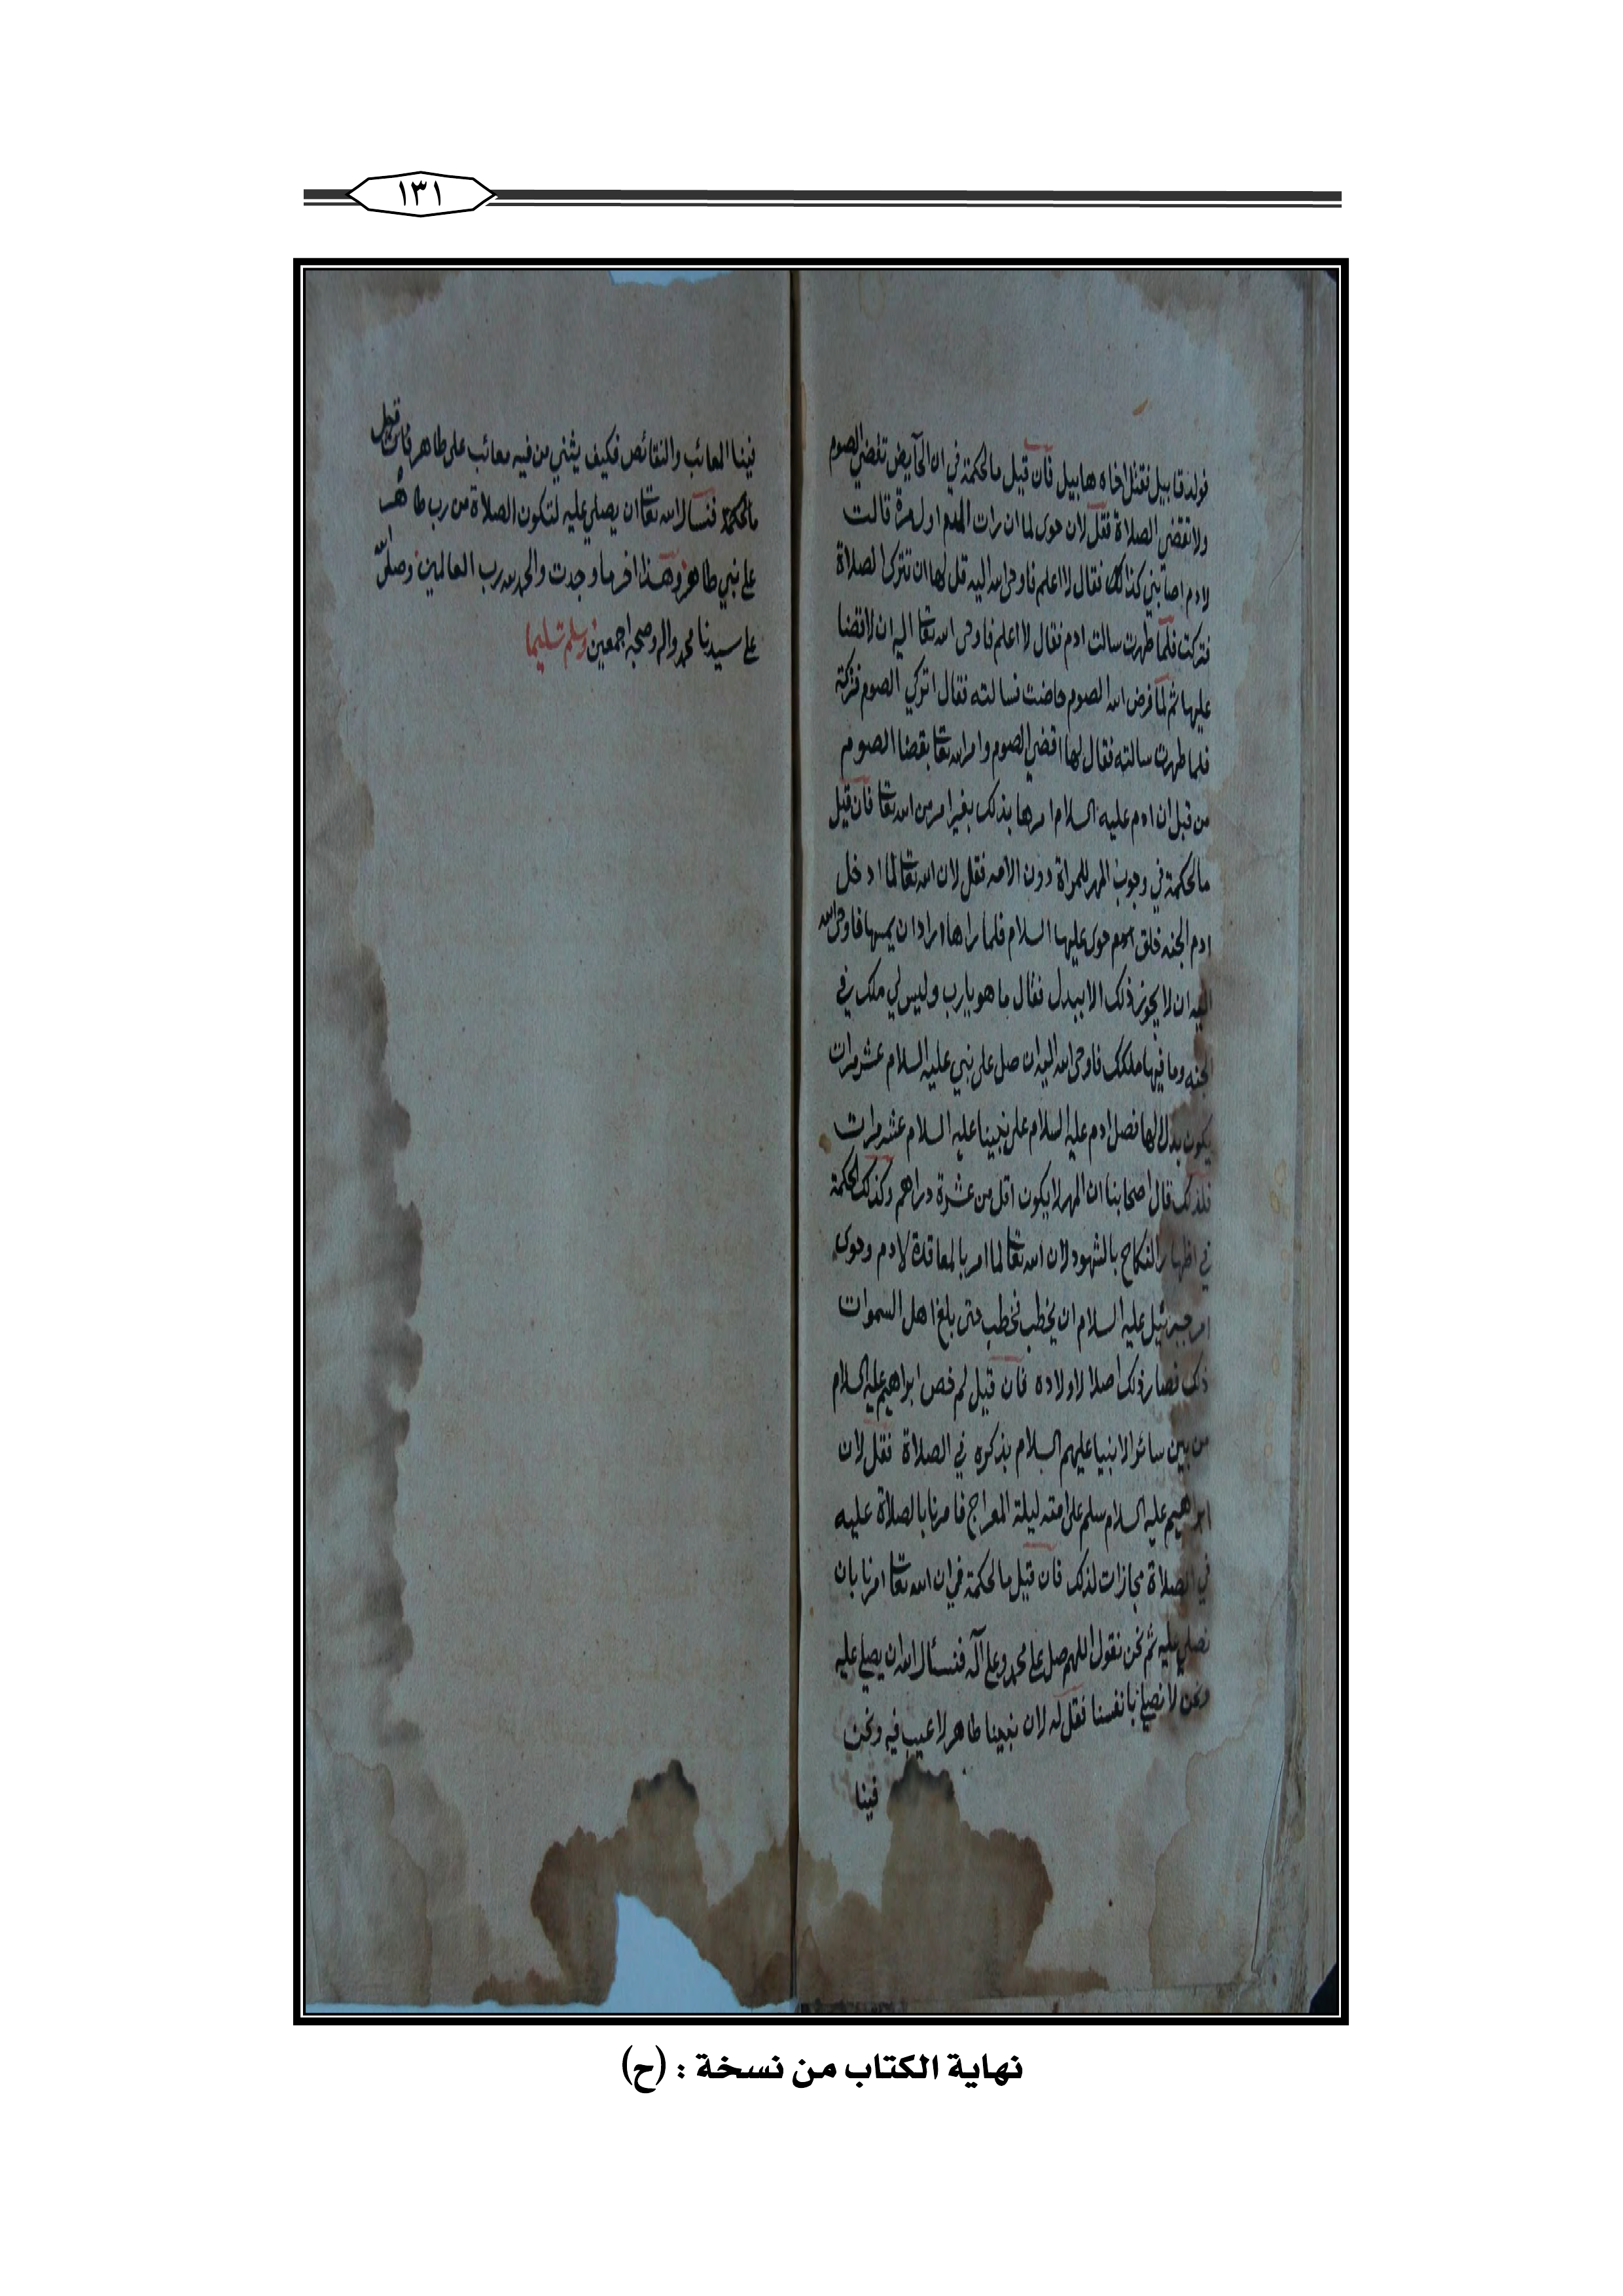 ١٣١
فولد قابيل فقتل اخاه هابيل فان قيل ما الحكمة في ان الحايض تقضي الصوم
ولا تقضي الصلاة فقل لان حوى لما ان رات الدم اول مرة قالت
لادم اصابني كذا فقال لا اعلم فاوحى الله اليه قل لها ان تترك الصلاة
فتركت فلما طهرت سالت ادم فقال لا اعلم فاوحى الله تعا اليه ان لا قضا
عليها ثم لما فرض الله الصوم حاضت فسالته فقال اتركي الصوم فتركته
فلما طهرت سالته فقال لها اقضي الصوم وامر الله تعا بقضا الصوم
من قبل ان ادم عليه السلام امرها بذلك بغير امر من الله تعا فان قيل
ما الحكمة في وجوب المهر للمراة دون الامه فقل لان الله تعا لما ادخل
ادم الجنه خلق حوى عليها السلام فلما راها اراد ان يمسها فاوحى الله
اليه ان لا يجوز ذلك الا ببدل فقال ما هو يارب وليس لي ملك في
الجنه وما فيها ملكك فاوحى الله اليه ان صل على نبي عليه السلام عشر مرات
يكون بدلا لها فصل ادم عليه السلام على نبينا عليه السلام عشر مرات
فلذلك قال اصحابنا ان المهر لا يكون اقل من عشرة دراهم وكذلك الحكمة
في اظهار النكاح بالشهود لان الله تعا لما امر بالمعاقدة لادم وحوى
امر جبرئيل عليه السلام ان يخطب فخطب حتى بلغ اهل السموات
ذلك فصار ذلك اصلا لاولاده فان قيل لم خص ابراهيم عليه السلام
من بين سائر الانبيا عليهم السلام بذكره في الصلاة فقل لان
ابراهيم عليه السلام سلم على امته ليلة المعراج فامرنا بالصلاة عليه
في الصلاة مجازات لذلك فان قيل ما الحكمة في ان الله تعا امرنا بان
نصلي عليه ثم نحن نقول اللهم صل على محمد وعلى آله فنسئال الله ان يصلي عليه
ونحن لا نصلي بانفسنا فقل له لان نبينا طاهر لا عيب فيه ونحن
فينا
فينا المعائب والنقائص فكيف يثني من فيه معائب على طاهر
ما الحكمة فنسال الله تعا ان يصلي عليه لتكون الصلاة من رب طاهر
على نبي طاهر وهذا اخر ما وجدت والحمد لله رب العالمين وصلى الله
على سيدنا محمد واله وصحبه اجمعين وسلم تسليما
نهاية الكتاب من نسخة : (ح)